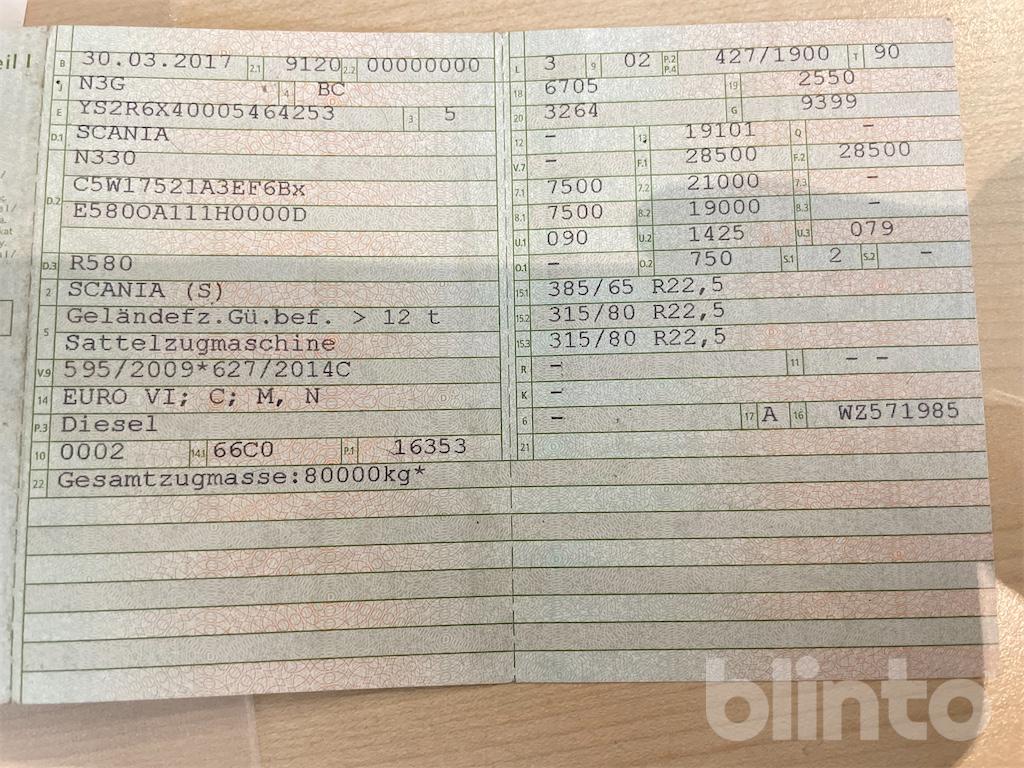 eil I
B 30.03.2017 2.1 9120 2.2 00000000
J N3G 4 BC
E YS2R6X40005464253 3 5
D.1 SCANIA
N330
D.2 C5W17521A3EF6Bx
E580OA111H0000D
D.3 R580
2 SCANIA (S)
5 Geländefz.Gü.bef. > 12 t
Sattelzugmaschine
V.9 595/2009*627/2014C
14 EURO VI; C; M, N
P.3 Diesel
10 0002 14.1 66C0 P.1 16353
22 Gesamtzugmasse:80000kg*
L 3 9 02 P.2 P.4 427/1900 T 90
18 6705 19 2550
20 3264 G 9399
12 - 13 19101 Q -
V.7 - F.1 28500 F.2 28500
7.1 7500 7.2 21000 7.3 -
8.1 7500 8.2 19000 8.3 -
U.1 090 U.2 1425 U.3 079
O.1 - O.2 750 S.1 2 S.2 -
15.1 385/65 R22,5
15.2 315/80 R22,5
15.3 315/80 R22,5
R - 11 - -
K -
6 - 17 A 16 WZ571985
21
blinto